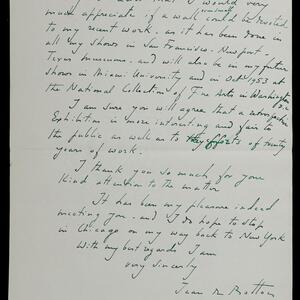 would very
much appreciate if a wall could be devoted
to my recent work, as it has been done in
all my shows in San Francisco. Newport -
Texas museums. and will also be in my future
shows in Miami University and in Oct 1953 at
the National Collection of Fine Arts in Washington D.C.
I am sure you will agree that a retrospective
Exhibition is more interesting and fair to
the public as well as to the efforts of twenty
years of work.
I thank you so much for your
kind attention to the matter
It has been my pleasure indeed
meeting you. and I do hope to stop
in Chicago on my way back to New York
With my best regards I am
very sincerely
Jean